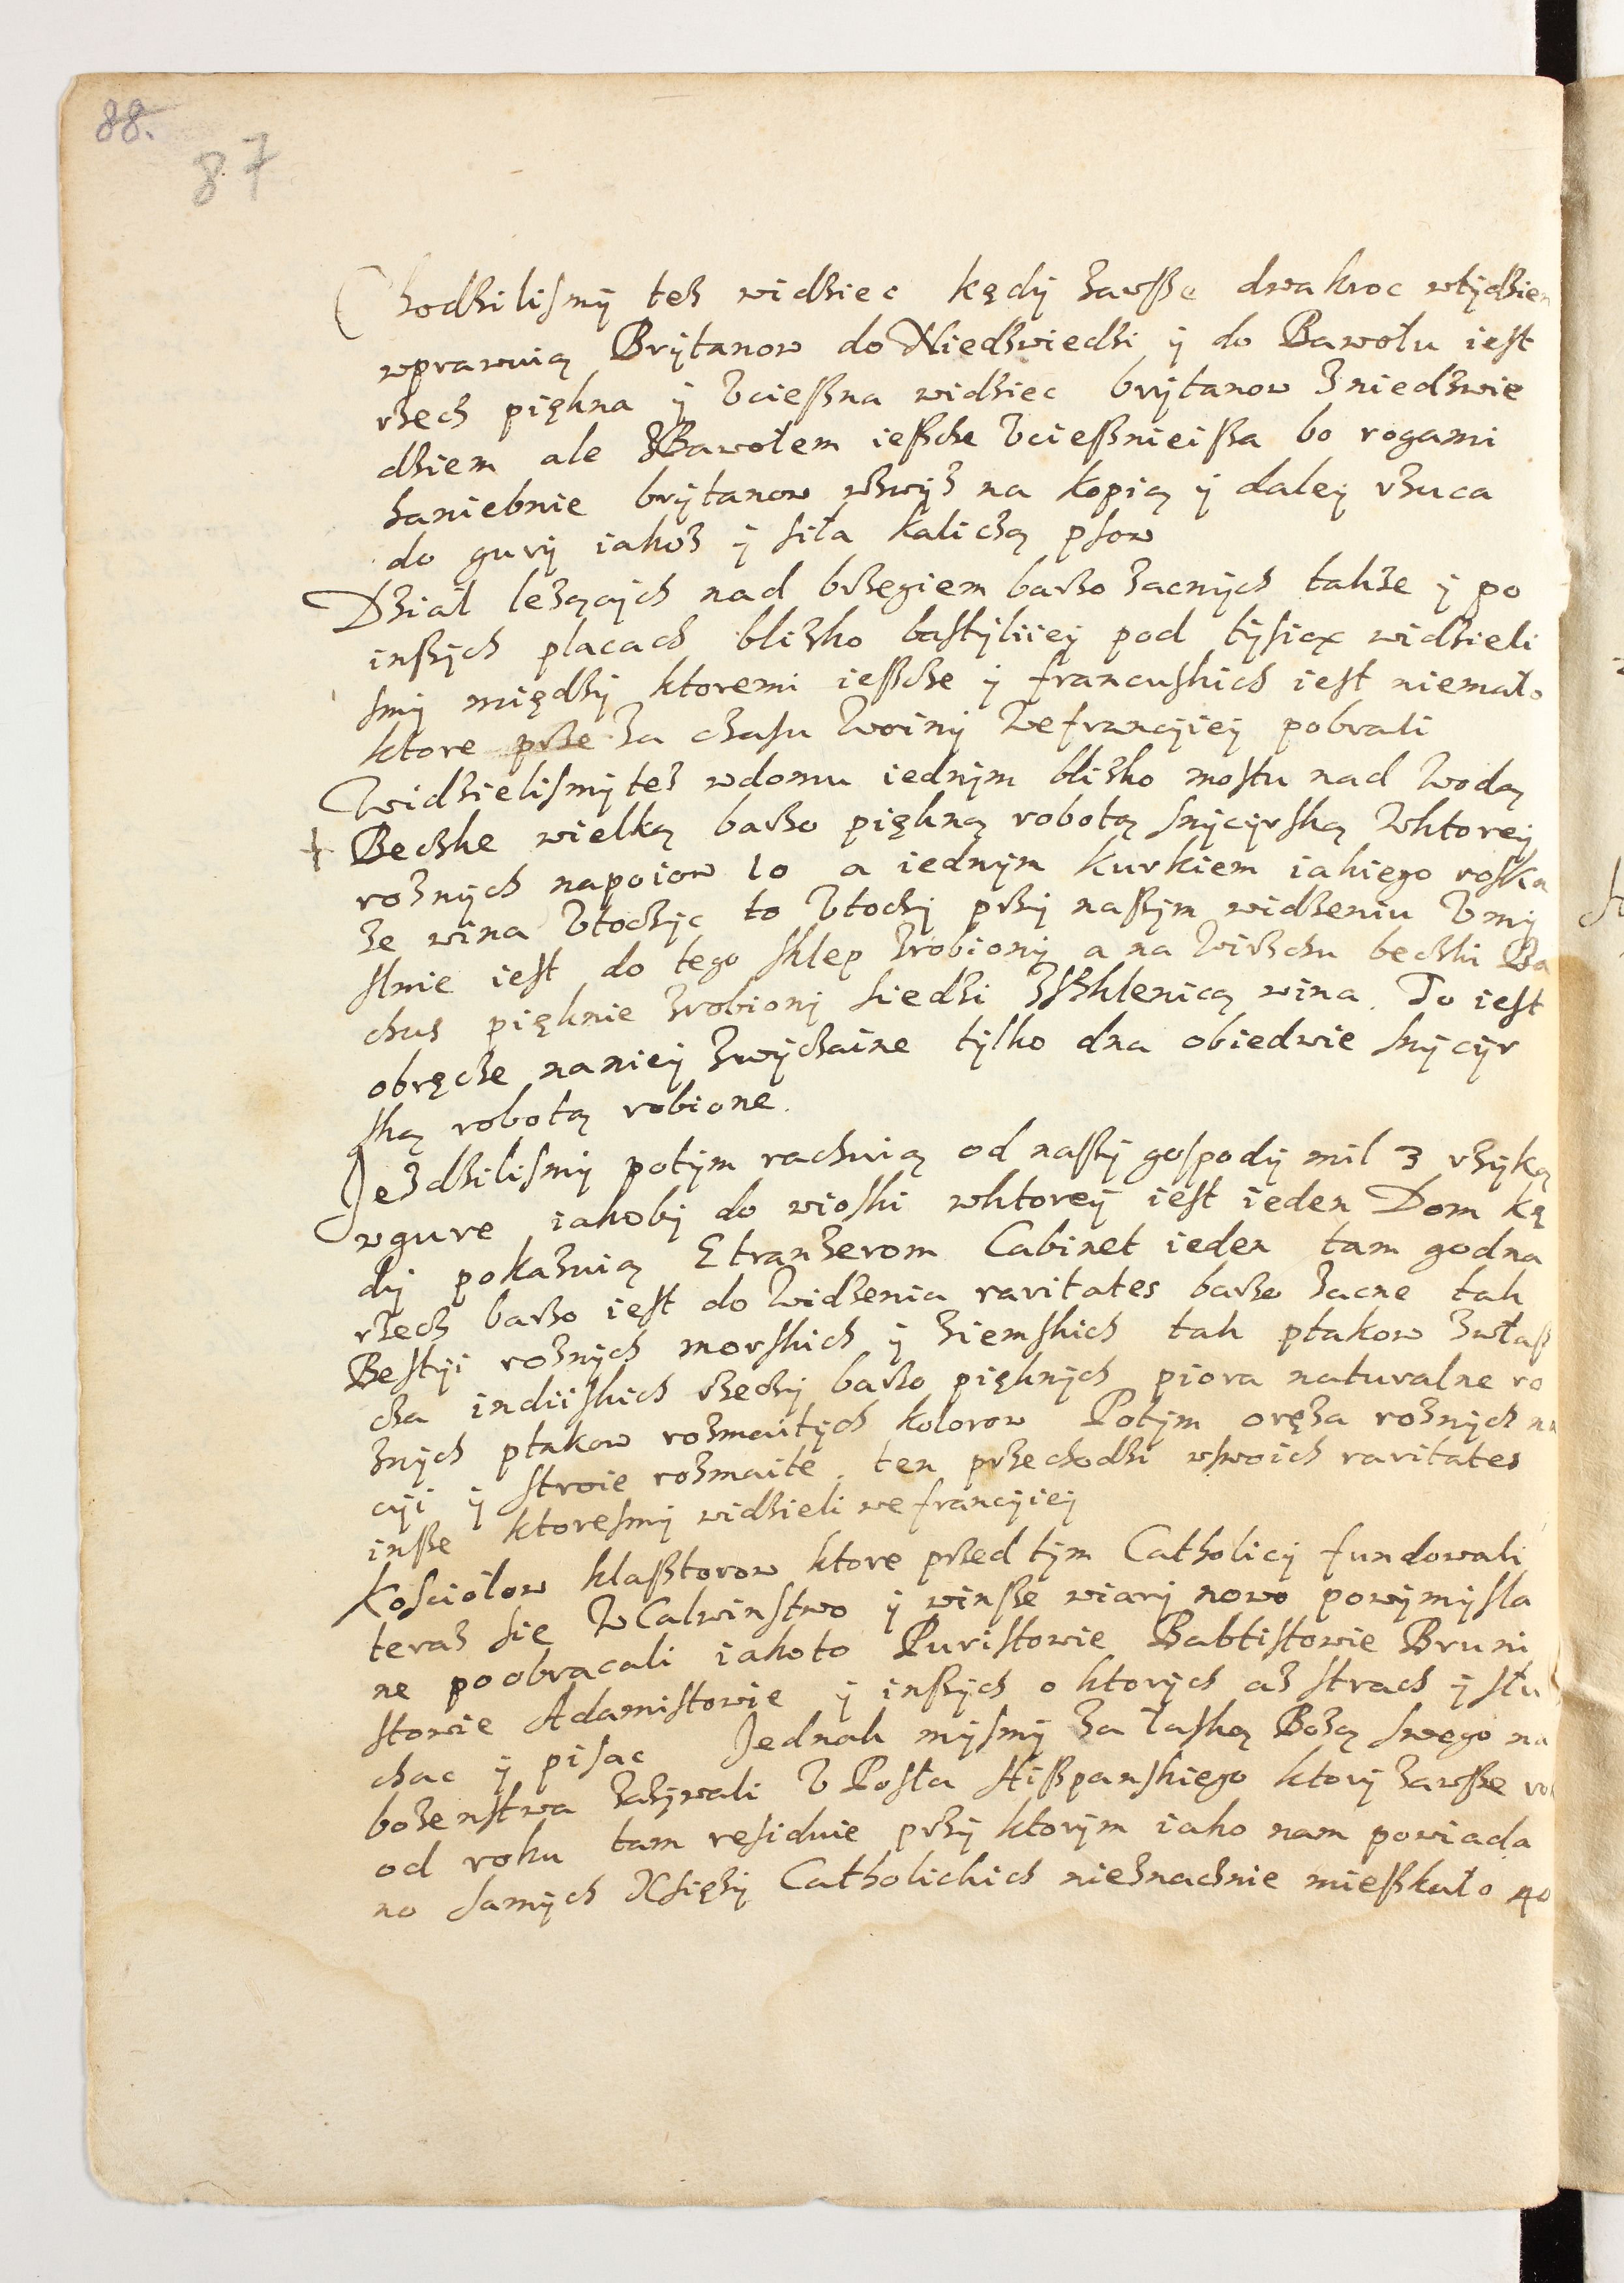 88.
87
Chodzilismÿ tez widziec kędÿ zawſze dwakroc wtÿdzien
wprawuią Brÿtanow do Niedzwiedzi ÿ do Bawołu ieſt
rzecz piękna ÿ Vcieſzna widziec brÿtanow z niedzwie
dziem ale z Bawołem ieſzcze Vcieſznieiſza bo rogami
haniebnie brÿtanow wzwÿz na kopią ÿ daleÿ rzuca
do gurÿ iakoz ÿ siła kaliczą pſow
Dział lezącÿch nad brzegiem barzo zacnÿch takze ÿ po
inſzÿch placach blizko baſtÿliieÿ pod tÿsiąc widzieli
ſmÿ międzÿ ktoremi ieſzcze ÿ francuſkich ieſt niemało
ktore za czaſu Woinÿ We francÿieÿ pobrali
Widzieliſmÿ tez wdomu iednÿm blizko moſtu nad Wodą
+ Beczke wielką barzo piękną robotą ſnÿcÿrſką Wktoreÿ
roznÿch napoiow 10 a iednÿm kurkiem iakiego roſka
ze wina Vtoczÿc to Vtoczÿ przÿ naſzÿm widzeniu Vmÿ
ſlnie ieſt do tego ſklep zrobionÿ a na Wirzchu beczki Ba
chus pięknie zrobionÿ siedzi zſzklenicą wina. To ieſt
obręcze nanieÿ zwÿczaine tÿlko dna obiedwie ſnÿcÿr
ſką robotą robione.
Jezdziliſmÿ potÿm rachuią od naſzÿ goſpodÿ mil 3 rzÿką
wgure iakobÿ do wioſki wktoreÿ ieſt ieden Dom kę
dÿ pokazuią Etranzerom Cabinet ieden tam godna
rzecz barzo ieſt do Widzenia raritates barzo zacne tak
Beſtÿi roznÿch morſkich ÿ ziemſkich tak ptakow zwłaſz
cza indiiſkich rzeczÿ barzo pięknÿch piora naturalne ro
znÿch ptakow rozmaitÿch kolorow Potÿm oręza roznÿch na
cÿi ÿ ſtroie rozmaite. ten przechodzi wſwoich raritates
inſze ktoreſmÿ widzieli we francÿieÿ
Koſciołow klaſztorow ktore przed tÿm Catholicÿ fundowali
teraz sie W Calwinſtwo ÿ winſze wiarÿ nowo powÿmÿſla
ne poobracali iakoto Puriſtowie Babtiſtowie Bruni
ſtowie Adamiſtowie ÿ inſzÿch o ktorÿch az ſtrach ÿ ſłu
chac ÿ piſac Jednak mÿſmÿ za łaſką Bozą ſwego na
bozenſtwa zazÿwali V Poſła Hiſzpanſkiego ktorÿ zawſze rok
od roku tam reſiduie przÿ ktorÿm iako nam powiada
no ſamÿch Xſięzÿ Catholickich nieznacznie mieſzkało 40